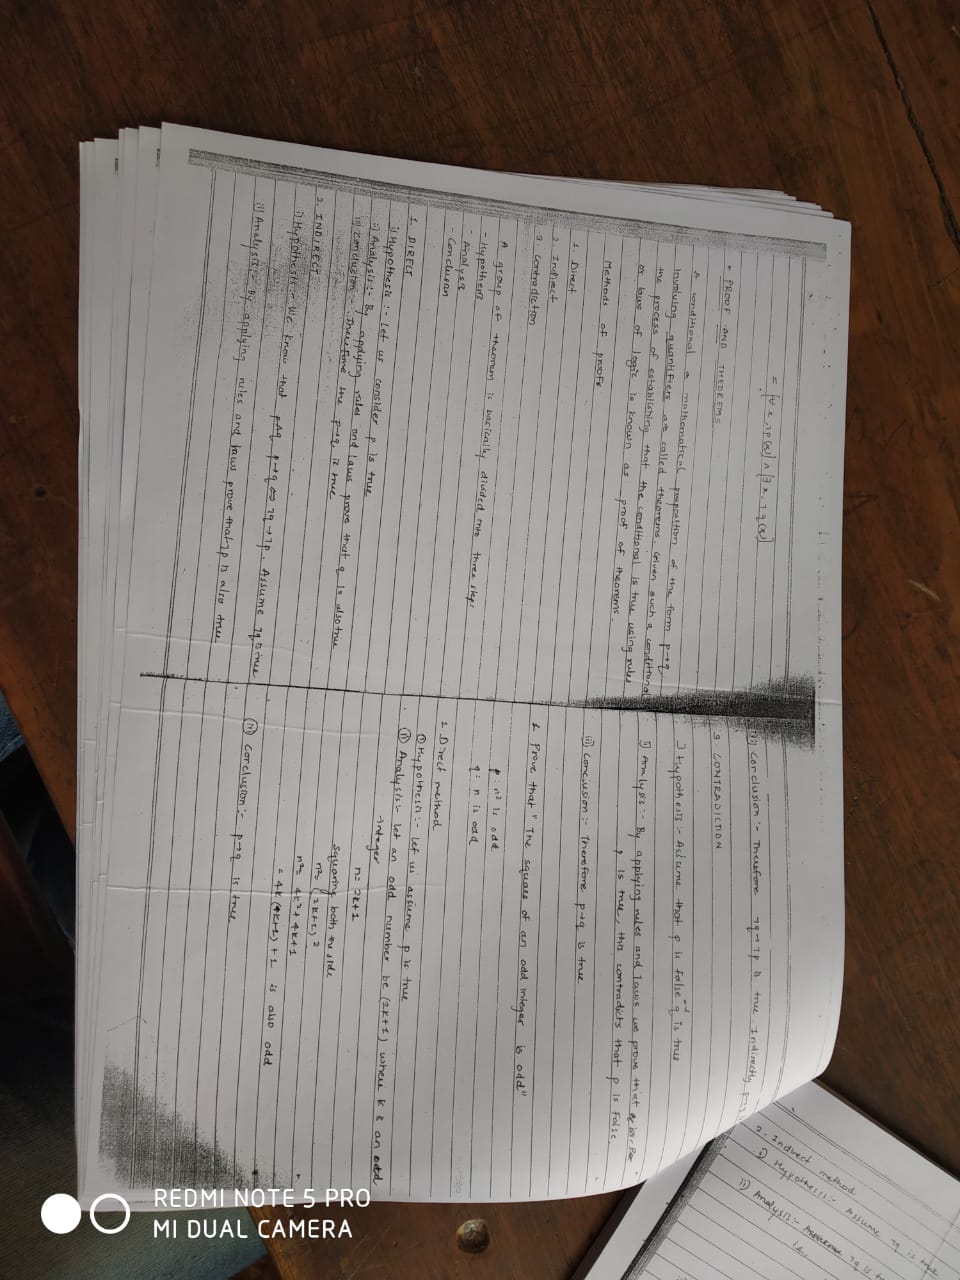 = [∀x, ¬p(x)] ∧ [∃x, ¬q(x)]
- PROOF AND THEOREMS
A conditional a mathematical proposition of the form p→q
involving quantifiers are called theorems. Given such a conditional
the process of establishing that the conditional is true using rules
or laws of logic is known as proof of theorems.
Methods of proofs
1. Direct
2. Indirect
3. Contradiction
A group of theorem is basically divided into three steps
- Hypothesis
- Analysis
- Conclusion
1. DIRECT
i) Hypothesis :- Let us consider p is true
ii) Analysis :- By applying rules and laws prove that q is also true
iii) Conclusion :- Therefore the p→q is true
2. INDIRECT
i) Hypothesis :- We know that p→q ⇔ ¬q→¬p. Assume ¬q is true
ii) Analysis :- By applying rules and laws prove that ¬p is also true
iii) Conclusion :- Therefore ¬q→¬p is true. Indirectly p→q
3. CONTRADICTION
i) Hypothesis :- Assume that p is false q is true
ii) Analysis :- By applying rules and laws we prove that
p is true, this contradicts that p is false.
iii) Conclusion :- Therefore p→q is true
1. Prove that "The square of an odd integer is odd"
p : n² is odd
q : n is odd
1. Direct method
i) Hypothesis :- Let us assume p is true
ii) Analysis :- Let an odd number be (2k+1) where k is an odd
-integer
n = 2k+1
squaring both the side
n² = (2k+1)²
n² = 4k² + 4k + 1
= 4k (4k+1) + 1 is also odd
iii) Conclusion :- p→q is true
2. Indirect method
i) Hypothesis :- Assume ¬q is true
ii) Analysis :- Assume ¬q is
i.e.
REDMI NOTE 5 PRO
MI DUAL CAMERA